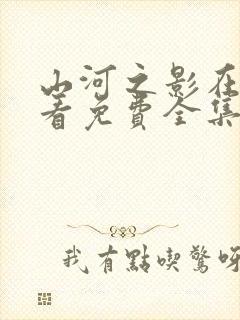 山河之影在
看免費全集
我有點喫驚呀